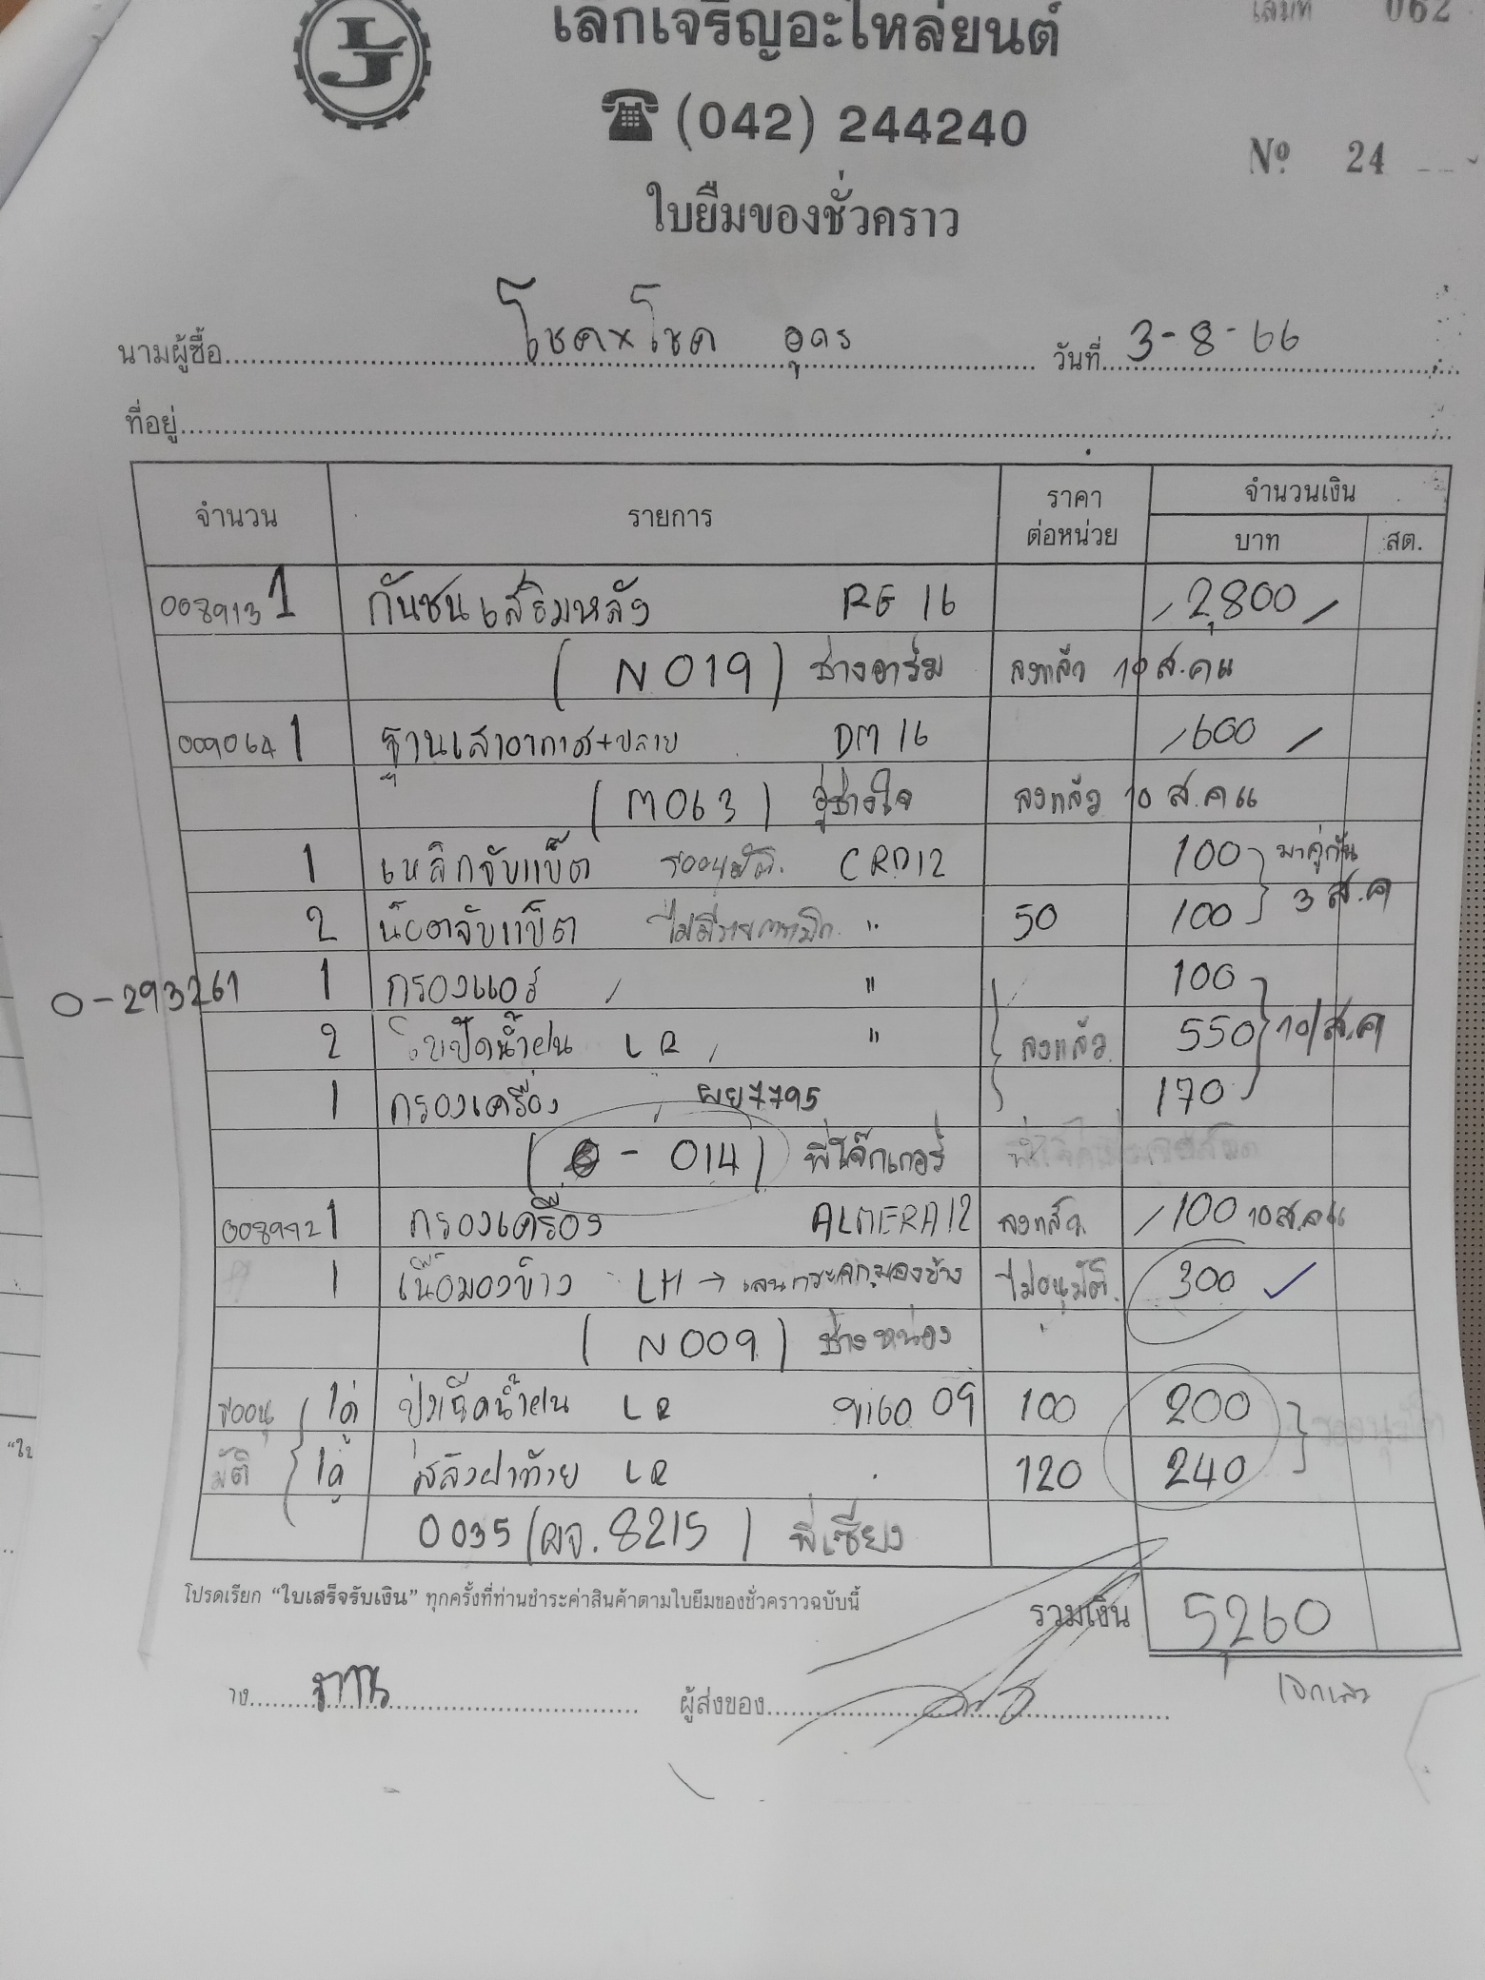 เล็กเจริญอะไหล่ยนต์
เล่มที่ 062
(042) 244240
Nº 24
ใบยืมของชั่วคราว
นามผู้ซื้อ โชค×โชค อุดร วันที่ 3-8-66
ที่อยู่
จำนวน รายการ ราคาต่อหน่วย จำนวนเงิน
บาท สต.
008913 1 กันชนเสริมหลัง RE 16 2,800
(N019) ช่างอาร์ม ลงแล้ว 10 ส.ค 66
009064 1 ฐานเสาอากาศ+ปลาย DM 16 600
(M063) อู่ช่างใจ ลงแล้ว 10 ส.ค 66
1 เหล็กจับแบ็ต รออนุมัติ CRD12 100 มาคู่กัน
2 น็อตจับแบ็ต " 50 100 3 ส.ค
0-293261 1 กรองแอร์ " 100
2 ใบปัดน้ำฝน LR " ลงแล้ว 550 10/ส.ค
1 กรองเครื่อง ผย7795 170
( - 014) พี่โจ๊กเกอร์
008992 1 กรองเครื่อง ALMERA12 ลงแล้ว 100 10 ส.ค 66
1 เนื้อมองข้าง LH → เลนกระจกมองข้าง ไม่อนุมัติ 300
(N009) ช่างหน่อง
รออนุ 1คู่ ปุ่มฉีดน้ำฝน LR วีโก้ 09 100 200
มัติ 1คู่ สลิงฝาท้าย LR 120 240
0035 (ผจ. 8215) พี่เซียง
โปรดเรียก "ใบเสร็จรับเงิน" ทุกครั้งที่ท่านชำระค่าสินค้าตามใบยืมของชั่วคราวฉบับนี้
รวมเงิน 5,260
ผู้ส่งของ